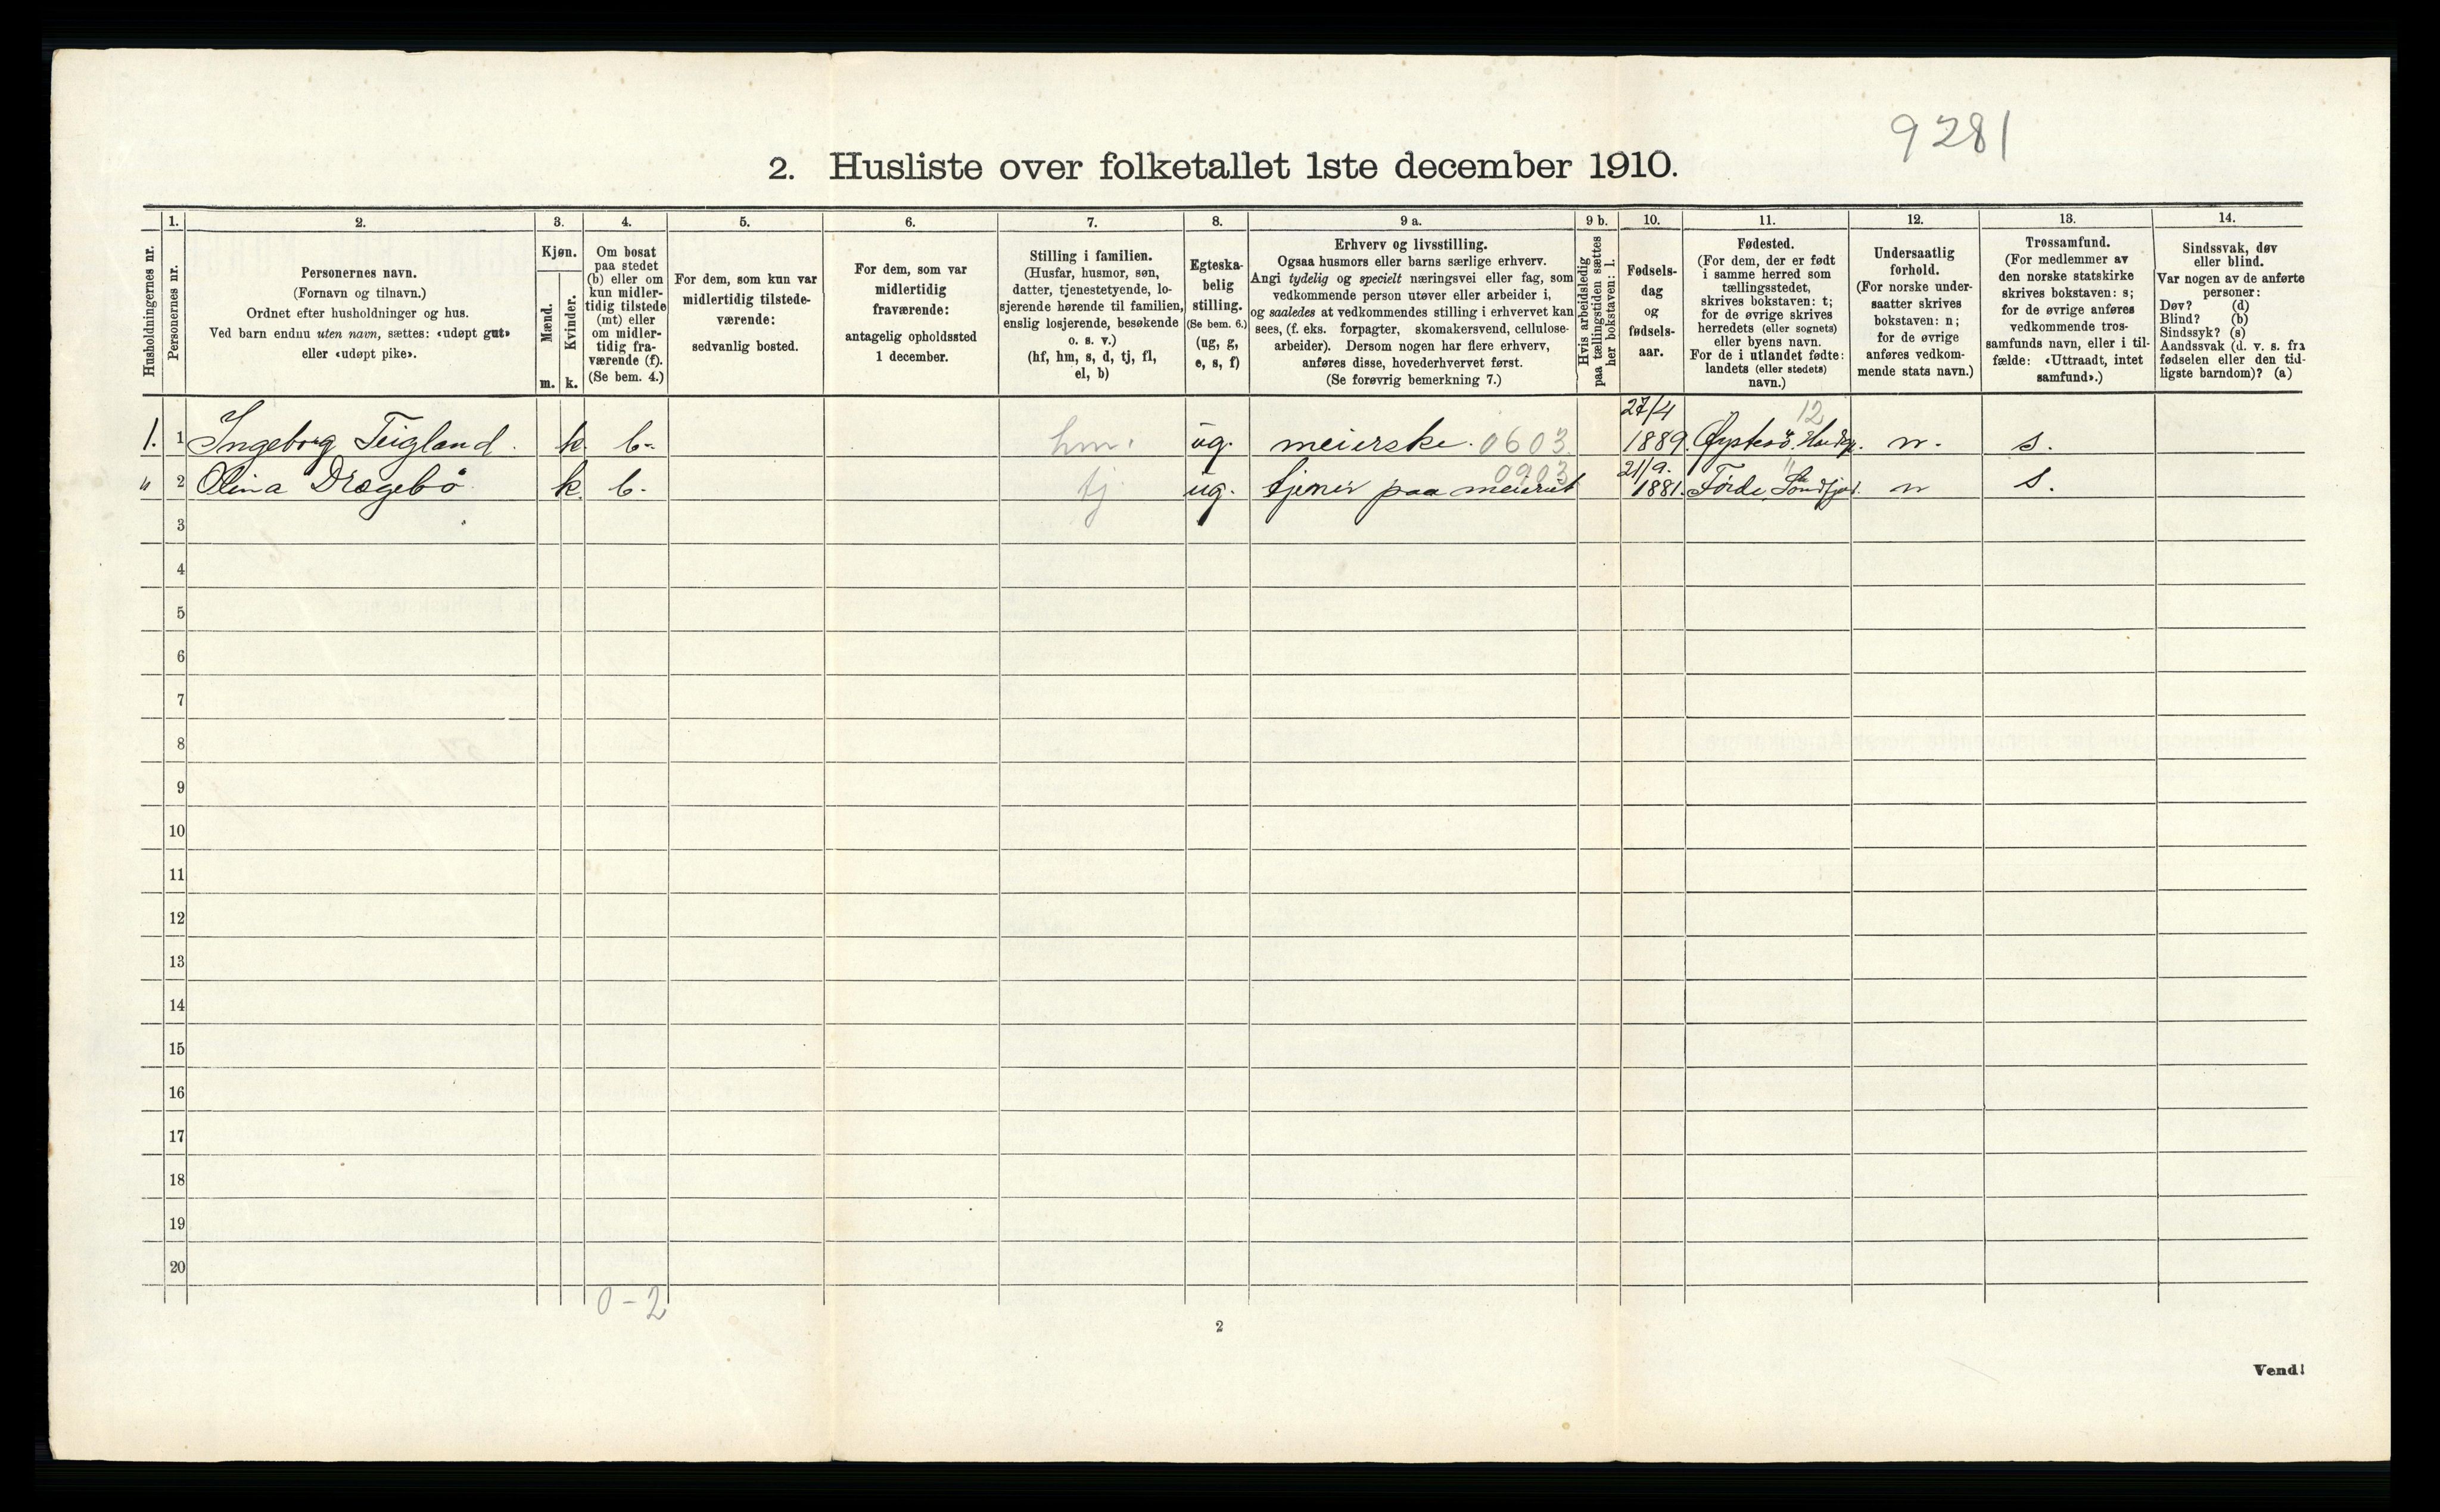 9281
2. Husliste over folketallet 1ste december 1910.
Husholdningernes nr.
1.
Personernes nr.
2.
Personernes navn.
(Fornavn og tilnavn.)
Ordnet efter husholdninger og hus.
Ved barn endnu uten navn, sættes: «udøpt gut»
eller «udøpt pike».
3.
Kjøn.
Mænd.
m.
Kvinder.
k.
4.
Om bosat
paa stedet
(b) eller om
kun midler-
tidig tilstede
(mt) eller
om midler-
tidig fra-
værende (f).
(Se bem. 4.)
5.
For dem, som kun var
midlertidig tilstede-
værende:
sedvanlig bosted.
6.
For dem, som var
midlertidig
fraværende:
antagelig opholdssted
1 december.
7.
Stilling i familien.
(Husfar, husmor, søn,
datter, tjenestetyende, lo-
sjerende hørende til familien,
enslig losjerende, besøkende
o. s. v.)
(hf, hm, s, d, tj, fl,
el, b)
8.
Egteska-
belig
stilling.
(Se bem. 6.)
(ug, g,
e, s, f)
9 a.
Erhverv og livsstilling.
Ogsaa husmors eller barns særlige erhverv.
Angi tydelig og specielt næringsvei eller fag, som
vedkommende person utøver eller arbeider i,
og saaledes at vedkommendes stilling i erhvervet kan
sees, (f. eks. forpagter, skomakersvend, cellulose-
arbeider). Dersom nogen har flere erhverv,
anføres disse, hovederhvervet først.
(Se forøvrig bemerkning 7.)
9 b.
Hvis arbeidsledig
paa tællingstiden sættes
her bokstaven: l.
10.
Fødsels-
dag
og
fødsels-
aar.
11.
Fødested.
(For dem, der er født
i samme herred som
tællingsstedet,
skrives bokstaven: t;
for de øvrige skrives
herredets (eller sognets)
eller byens navn.
For de i utlandet fødte:
landets (eller stedets)
navn.)
12.
Undersaatlig
forhold.
(For norske under-
saatter skrives
bokstaven: n;
for de øvrige
anføres vedkom-
mende stats navn.)
13.
Trossamfund.
(For medlemmer av
den norske statskirke
skrives bokstaven: s;
for de øvrige anføres
vedkommende tros-
samfunds navn, eller i til-
fælde: «Uttraadt, intet
samfund».)
14.
Sindssvak, døv
eller blind.
Var nogen av de anførte
personer:
Døv? (d)
Blind? (b)
Sindssyk? (s)
Aandssvak (d. v. s. fra
fødselen eller den tid-
ligste barndom)? (a)
27/4 12
1. 1 Ingeborg Teigland. k. b- hm. ug. meierske. 0603 1889. Øystesö n. s.
0903 21/9. "
" 2 Olina Drægebö k. b- tj ug. tjener paa meieriet 1881. Förde, Söndfjord. n s.
3
4
5
6
7
8
9
10
11
12
13
14
15
16
17
18
19
20
0-2
2
Vend!